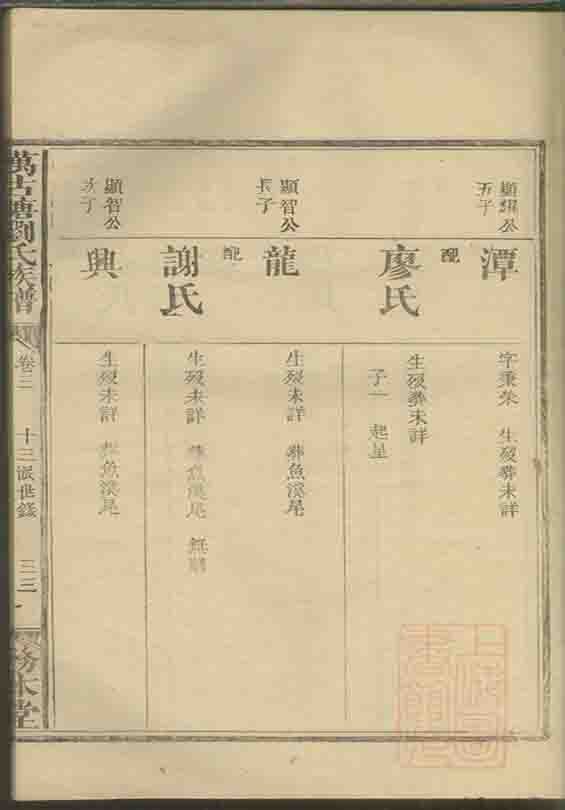 顯耀公
五子
潭
字秉榮 生殁葬未詳
配
廖氏
生殁葬未詳
子一 起星
顯智公
長子
龍
生殁未詳 葬魚溪尾
配
謝氏
生殁未詳 葬魚溪尾 無嗣
顯智公
次子
興
生殁未詳 葬魚溪尾
萬古塘劉氏族譜
卷三
十三派世錄
三三
務本堂